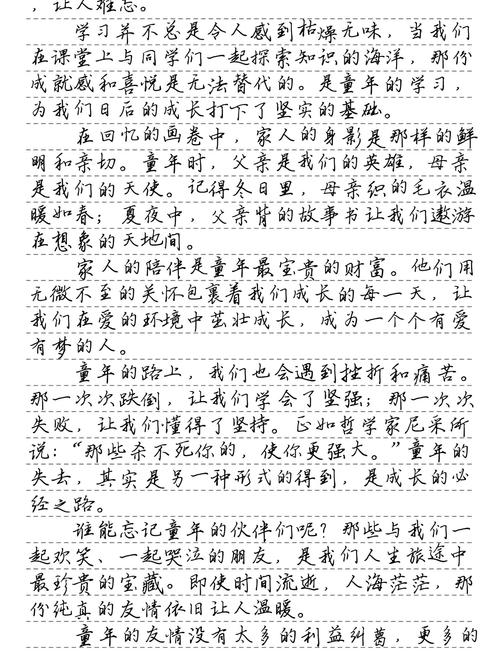 ，让人难忘。
学习并不总是令人感到枯燥无味，当我们
在课堂上与同学们一起探索知识的海洋，那份
成就感和喜悦是无法替代的。是童年的学习，
为我们日后的成长打下了坚实的基础。
在回忆的画卷中，家人的身影是那样的鲜
明和亲切。童年时，父亲是我们的英雄，母亲
是我们的天使。记得冬日里，母亲织的毛衣温
暖如春；夏夜中，父亲背的故事书让我们遨游
在想象的天地间。
家人的陪伴是童年最宝贵的财富。他们用
无微不至的关怀包裹着我们成长的每一天，让
我们在爱的环境中茁壮成长，成为一个个有爱
有梦的人。
童年的路上，我们也会遇到挫折和痛苦。
那一次次跌倒，让我们学会了坚强；那一次次
失败，让我们懂得了坚持。正如哲学家尼采所
说：“那些杀不死你的，使你更强大。”童年的
失去，其实是另一种形式的得到，是成长的必
经之路。
谁能忘记童年的伙伴们呢？那些与我们一
起欢笑、一起哭泣的朋友，是我们人生旅途中
最珍贵的宝藏。即使时间流逝，人海茫茫，那
份纯真的友情依旧让人温暖。
童年的友情没有太多的利益纠葛，更多的